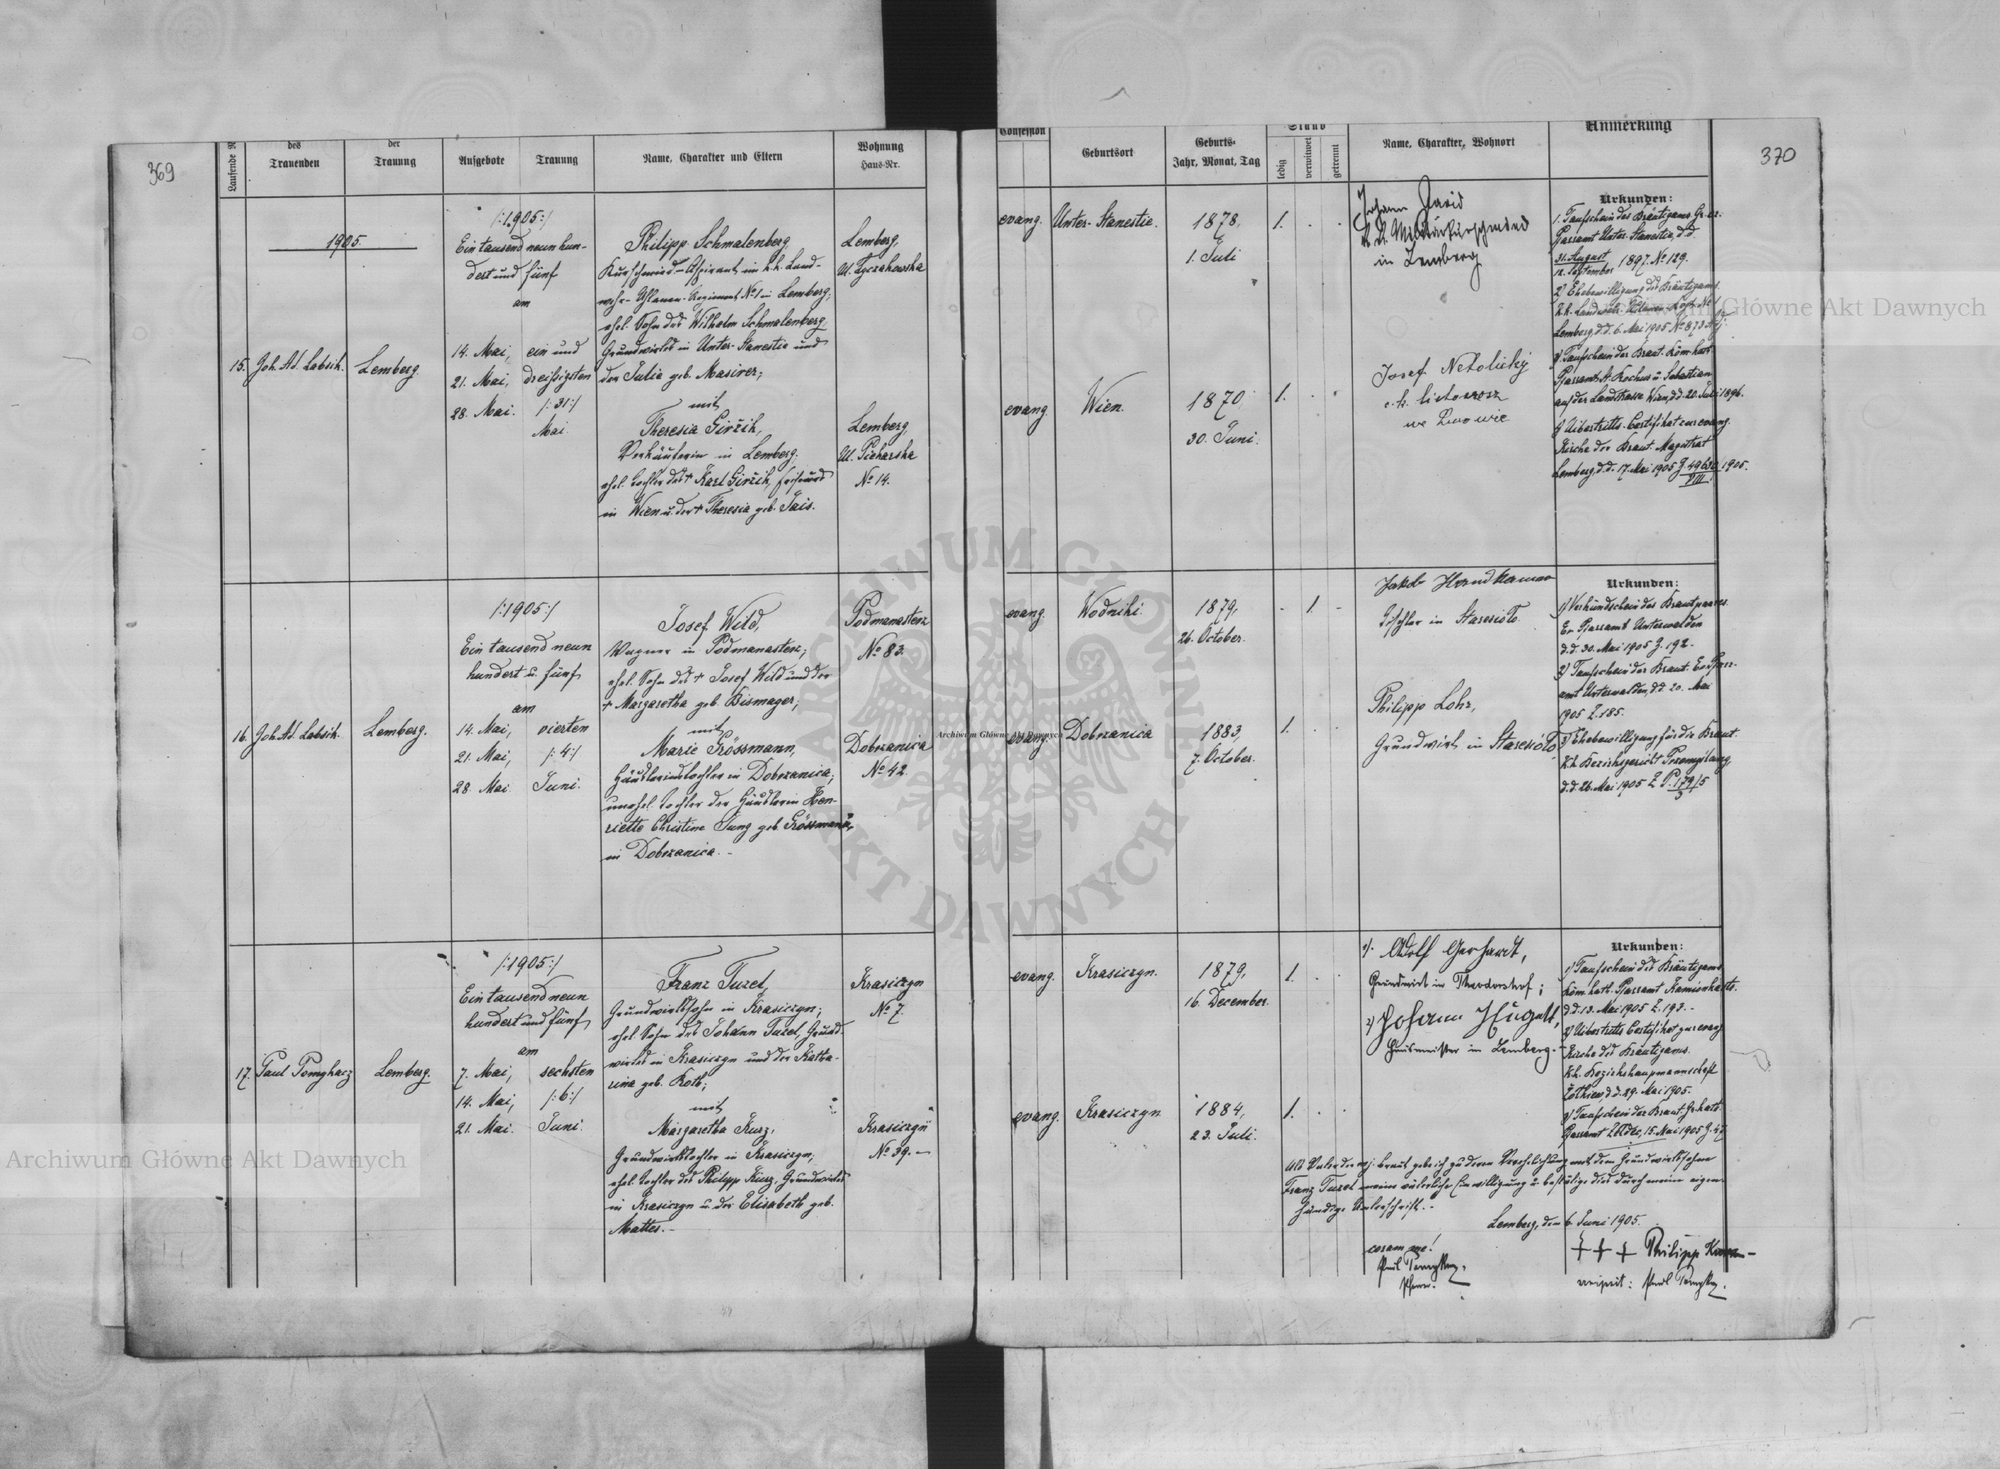 369
Laufende N
des
Trauenden
der
Trauung
Aufgebote
Trauung
Name, Charakter und Eltern
Wohnung
Haus-Nr.
1905
15. Joh. Ad. Labsik.
Lemberg.
/:1905:/
Ein tausend neun hun-
dert und fünf
am
14. Mai,
21. Mai,
28. Mai.
ein und
dreißigsten
/:31:/
Mai.
Philipp Schmalenberg
Kurschmied-Aspirant im k.k. Land-
wehr-Uhlanen-Regiment No 1 in Lemberg,
ehel. Sohn des Wilhelm Schmalenberg
Grundwirtes in Unter-Stanestie und
der Julie geb. Masirer;
mit
Theresia Giržik,
Verkäuferin in Lemberg;
ehel. Tochter des † Karl Giržik,
in Wien u. der † Theresia geb. Jais.
Lemberg,
Ul. Łyczakowska
Lemberg
Ul. Piekarska
No 14.
16. Joh. Ad. Labsik.
Lemberg.
/:1905:/
Ein tausend neun
hundert u. fünf
am
14. Mai,
21. Mai,
28. Mai
vierten
/:4:/
Juni.
Josef Wild,
Wagner in Podmanasterz;
ehel. Sohn des † Josef Wild und der
† Margaretha geb. Bismager;
mit
Marie Grössmann,
Häuslerinstochter in Dobrzanica;
unehel. Tochter der Häuslerin Hen-
riette Christine Jung geb. Grössmann,
in Dobrzanica.-
Podmanasterz
No 83.
Dobrzanica
No 42
17. Paul Pomykacz
Lemberg.
/:1905:/
Ein tausend neun
hundert und fünf
am
7. Mai,
14. Mai,
21. Mai.
sechsten
/:6:/
Juni.
Franz Turel,
Grundwirtssohn in Krasiczyn;
ehel. Sohn des Johann Turel, Grund-
wirtes in Krasiczyn und der Katha-
rina geb. Koth;
mit
Margaretha Kurz,
Grundwirtstochter in Krasiczyn;
ehel. Tochter des Philipp Kurz, Grundwirtes
in Krasiczyn u. der Elisabeth geb.
Mattes.-
Krasiczyn
No 7.
Krasiczyn
No 39.-
370
Confession
Geburtsort
Geburts-
Jahr, Monat, Tag
Stand
ledig
verwitwet
getrennt
Name, Charakter, Wohnort
Anmerkung
evang.
Unter-Stanestie.
1878,
1. Juli
1.
Johann David
k.k. Militärkurschmied
in Lemberg
evang
Wien.
1870,
30. Juni.
1.
Josef Netolicky
c.k. listonosz
we Lwowie
Urkunden:
1. Taufschein des Bräutigams. Gr. or.
Pfarramt Unter-Stanestie, d.d.
31. August
12. September 1897. No 129.
2) Ehebewilligung des Bräutigams.
Lemberg d.d. 6. Mai 1905 No 873
3) Taufschein der Braut. Röm. kath.
Pfarramt St. Rochus u. Sebastian
auf der Landstrasse Wien, d.d. 20. Juli 1896.
4) Uibertritts-Certifikat zur evang.
Kirche der Braut. Magistrat
Lemberg, d.d. 17. Mai 1905
evang.
Wodniki.
1879,
26. October.
1.
Jakob
Tischler in Staresioło
evang.
Dobrzanica
1883,
7. October.
1.
Philipp Lohr,
Grundwirt in Staresioło
Urkunden:
1) Verkündschein des Brautpaares.
Ev. Pfarramt Unterwalden
d.d. 30. Mai 1905 Z. 192.
2) Taufschein der Braut. Ev. Pfarr-
amt Unterwalden, d.d. 20. Mai
1905 Z. 185.
3) Ehebewilligung für die Braut
k.k. Bezirksgericht Przemyślany
d.d. 26. Mai 1905
evang.
Krasiczyn.
1879,
16. December.
1.
1). Adolf Gerhardt,
Grundwirt in Theodorshof;
2) Johann
Hausmeister in Lemberg.-
evang.
Krasiczyn
1884,
23. Juli.
1.
Urkunden:
1) Taufschein des Bräutigams
Röm. kath. Pfarramt
d.d. 13. Mai 1905 Z. 193.-
2) Uibertritts Certifikat zur evang
Kirche des Bräutigams.
k.k. Bezirkshauptmannschaft
d.d. 29. Mai 1905.
3) Taufschein der Braut.
Pfarramt 15. Mai 1905 Z. 47
Als Vater der mj. Braut gebe ich zu deren Verehelichung mit dem Grundwirtssohne
Franz Turel meine väterliche Einwilligung u. bestätige dies durch meine eigen-
händige Unterschrift.-
Lemberg, den 6. Juni 1905.
coram me!
Pfarr.
+ + + Philipp Kurz-
Archiwum Główne Akt Dawnych
Archiwum Główne Akt Dawnych
Główne Akt Dawnych
ARCHIWUM GŁÓWNE AKT DAWNYCH